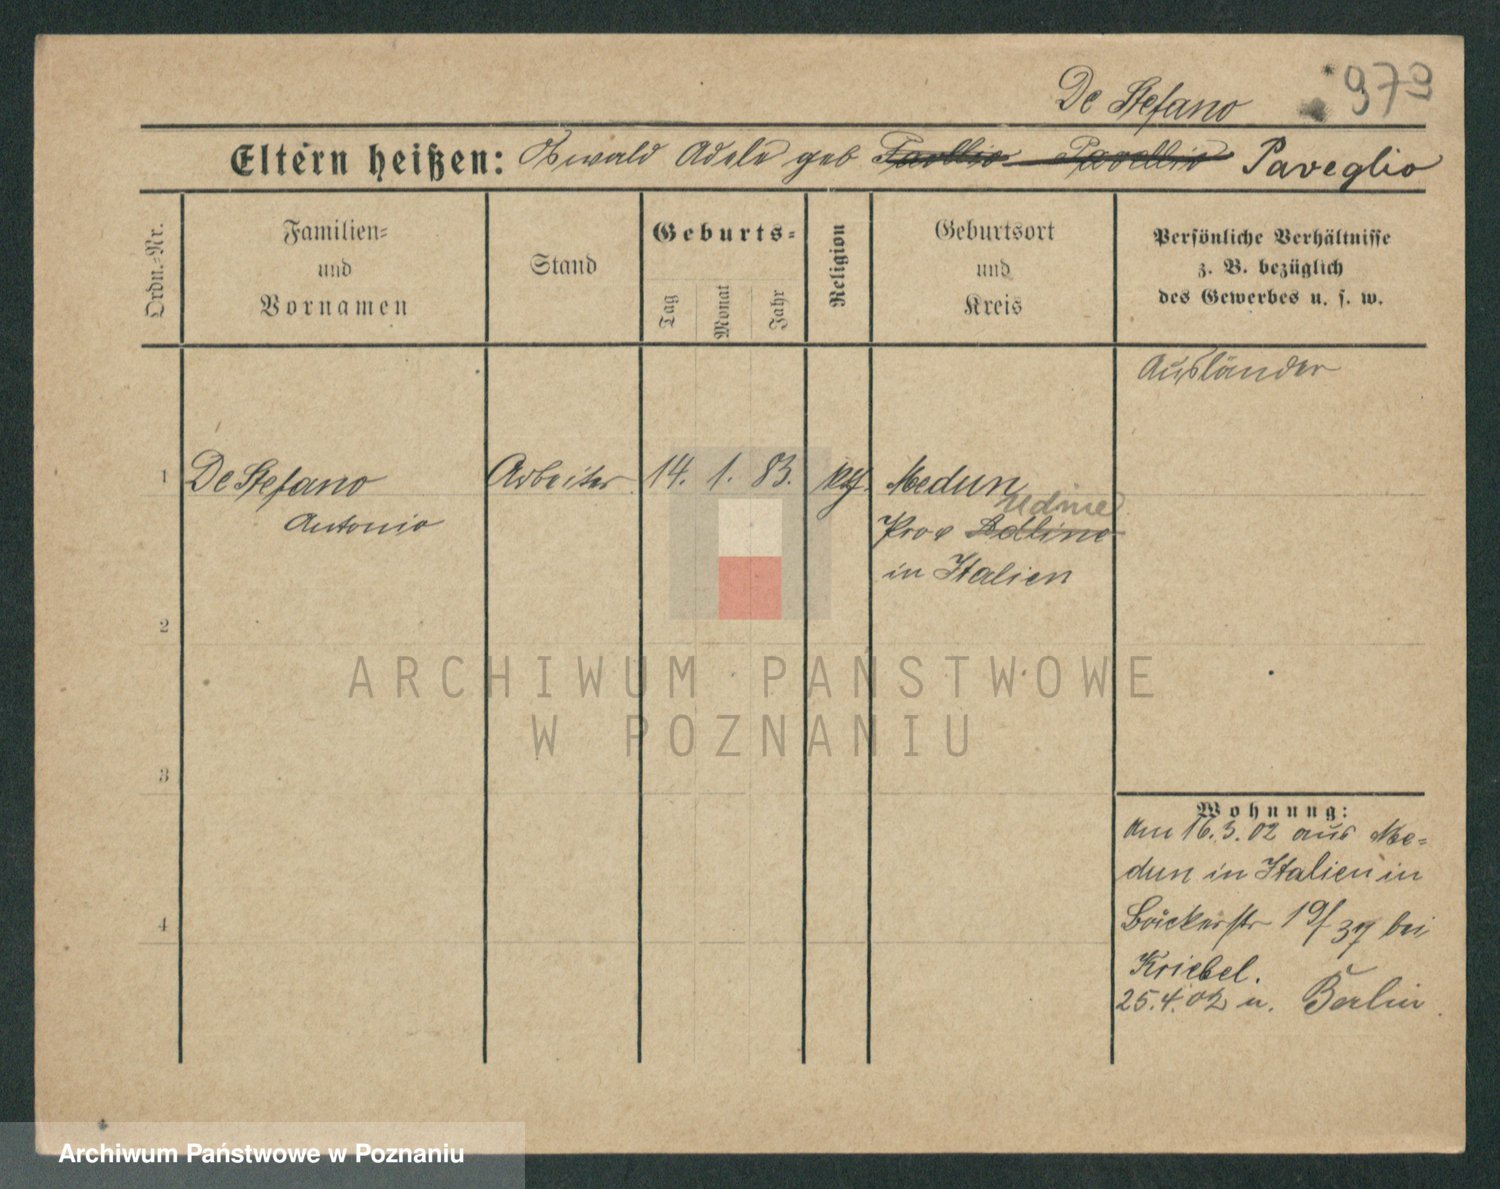 De Stefano 979
Eltern heißen: Oswald Adele geb Paveglio
Ordn.-Nr.
Familien-
und
Vornamen
Stand
Geburts-
Tag
Monat
Jahr
Religion
Geburtsort
und
Kreis
Persönliche Verhältnisse
z. B. bezüglich
des Gewerbes u. s. w.
Ausländer
1 De Stefano Arbeiter 14. 1. 83. Medun
Antonio
Udine
Prov
in Italien
2
3
4
Wohnung:
Am 16.3.02 aus Me-
dun in Italien in
Bäckerstr 19/ bei
Kriebel.
25.4.02 n. Berlin
ARCHIWUM PAŃSTWOWE
W POZNANIU
Archiwum Państwowe w Poznaniu